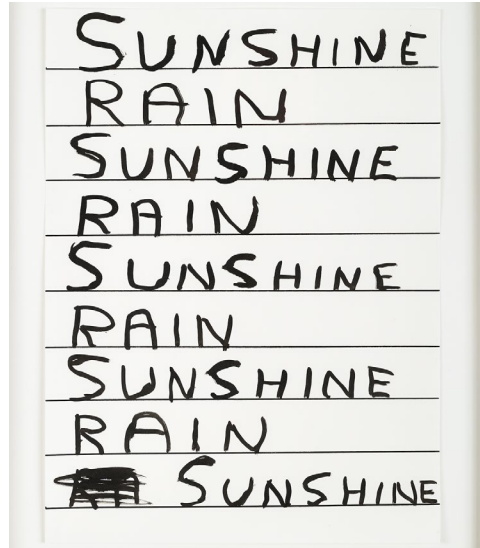 SUNSHINE
RAIN
SUNSHINE
RAIN
SUNSHINE
RAIN
SUNSHINE
RAIN
SUNSHINE